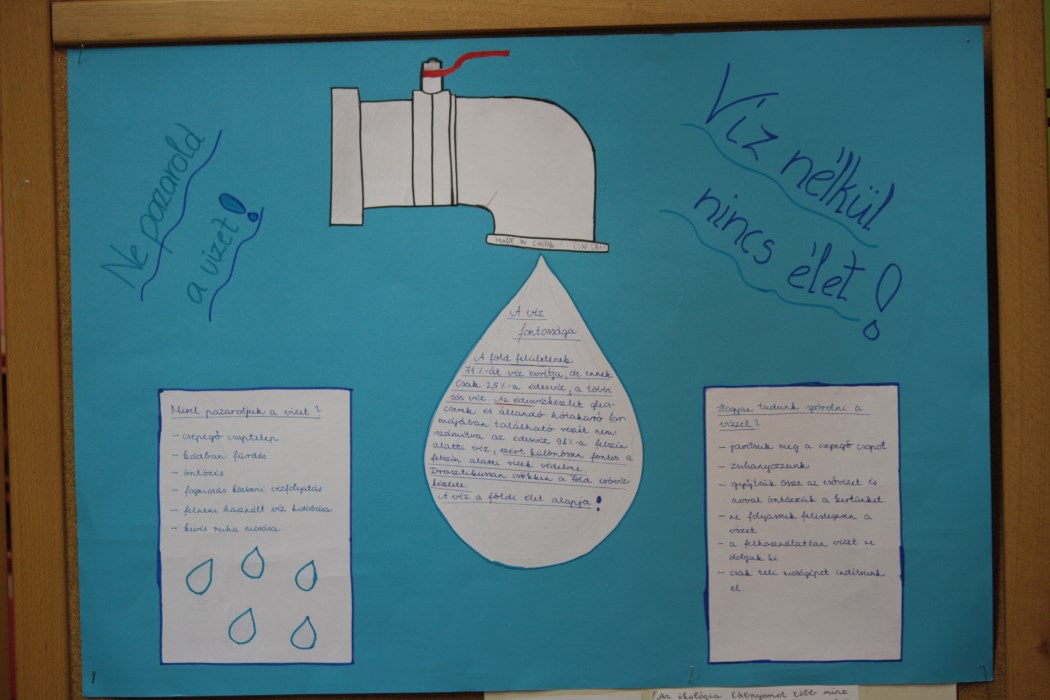 Ne pazarold
a vizet!
Víz nélkül
nincs élet!
MADE IN CHINA
A víz
fontossága
A föld felületének
71%-át víz borítja, de ennek
csak 2,5%-a édesvíz, a többi
sós víz. Az édesvízkészlet glecs-
cserek és állandó hótakaró for-
májában található részét nem
számítva az édesvíz 98%-a felszín
alatti víz, ezért különösen fontos a
felszín alatti vizek védelme.
Drasztikussan csökken a Föld ivóvíz
készlete.
A víz a földi élet alapja!
Mivel pazaroljuk a vizet?
- csepegő csaptelep
- kádban fürdés
- öntözés
- fogmosás közbeni vízfolyatás
- felnem használt víz kidobása
- kevés ruha mosása
Hogyan tudunk spórolni a
vízzel?
- javítsuk meg a csepegő csapot
- zuhanyozzunk
- gyűjtsük össze az esővizet és
avval öntözzük a kertünket
- ne folyassuk feleslegesen a
vizet
- a felhasználatlan vizet ne
dobjuk ki
- csak teli mosógépet indítsunk
el
Az ökológia lábnyomot több mint